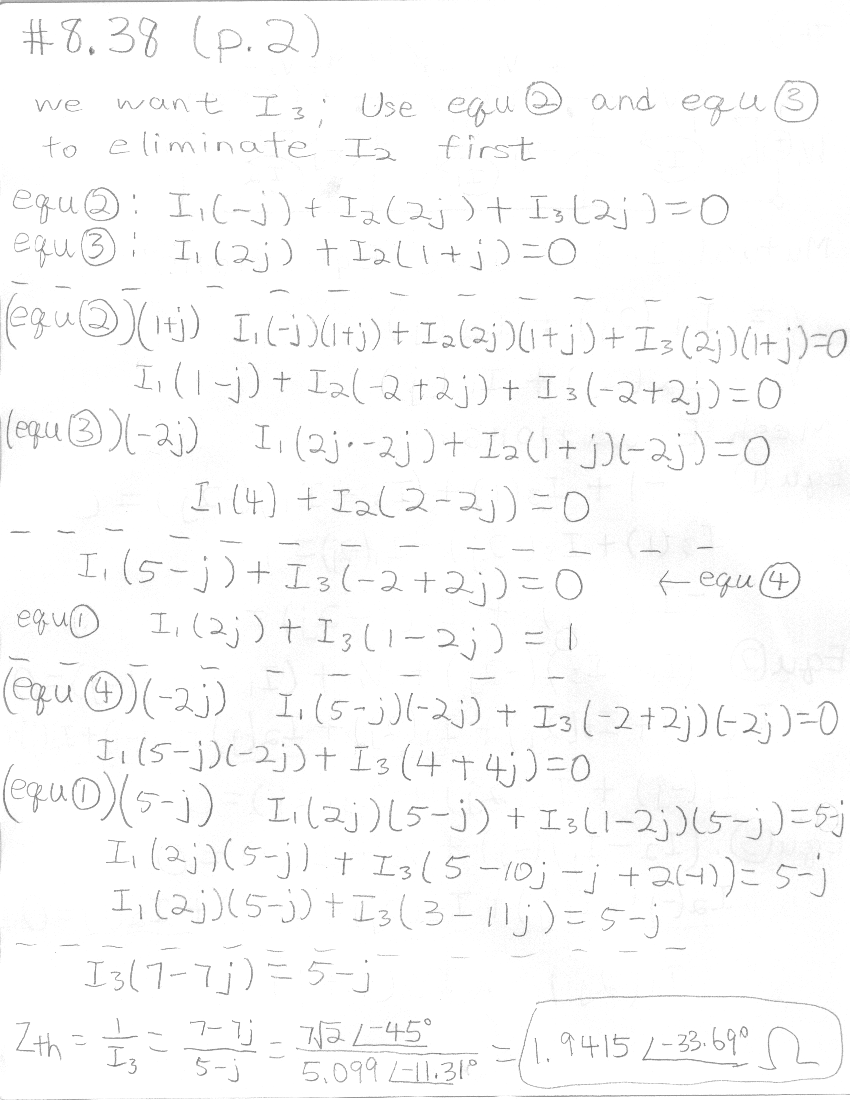 #8.38 (p.2)
we want I₃; Use equ ② and equ ③
to eliminate I₂ first
equ②: I₁(-j) + I₂(2j) + I₃(2j) = 0
equ③: I₁(2j) + I₂(1+j) = 0
(equ②)(1+j) I₁(-j)(1+j) + I₂(2j)(1+j) + I₃(2j)(1+j)=0
I₁(1-j) + I₂(-2+2j) + I₃(-2+2j) = 0
(equ③)(-2j) I₁(2j·-2j) + I₂(1+j)(-2j) = 0
I₁(4) + I₂(2-2j) = 0
I₁(5-j) + I₃(-2+2j) = 0 ← equ④
equ① I₁(2j) + I₃(1-2j) = 1
(equ④)(-2j) I₁(5-j)(-2j) + I₃(-2+2j)(-2j)=0
I₁(5-j)(-2j) + I₃(4+4j)=0
(equ①)(5-j) I₁(2j)(5-j) + I₃(1-2j)(5-j)=5-j
I₁(2j)(5-j) + I₃(5-10j-j+2(-1))= 5-j
I₁(2j)(5-j) + I₃(3-11j) = 5-j
I₃(7-7j) = 5-j
Zth = 1/I₃ = 7-7j/5-j = 7√2∠-45°/5.099∠-11.31° = 1.9415∠-33.69° Ω